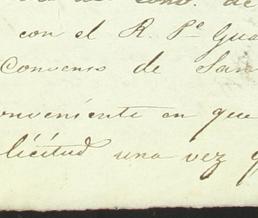 con el R. Pe Gua
Convenio de San
onveniente en que
licitud una vez q